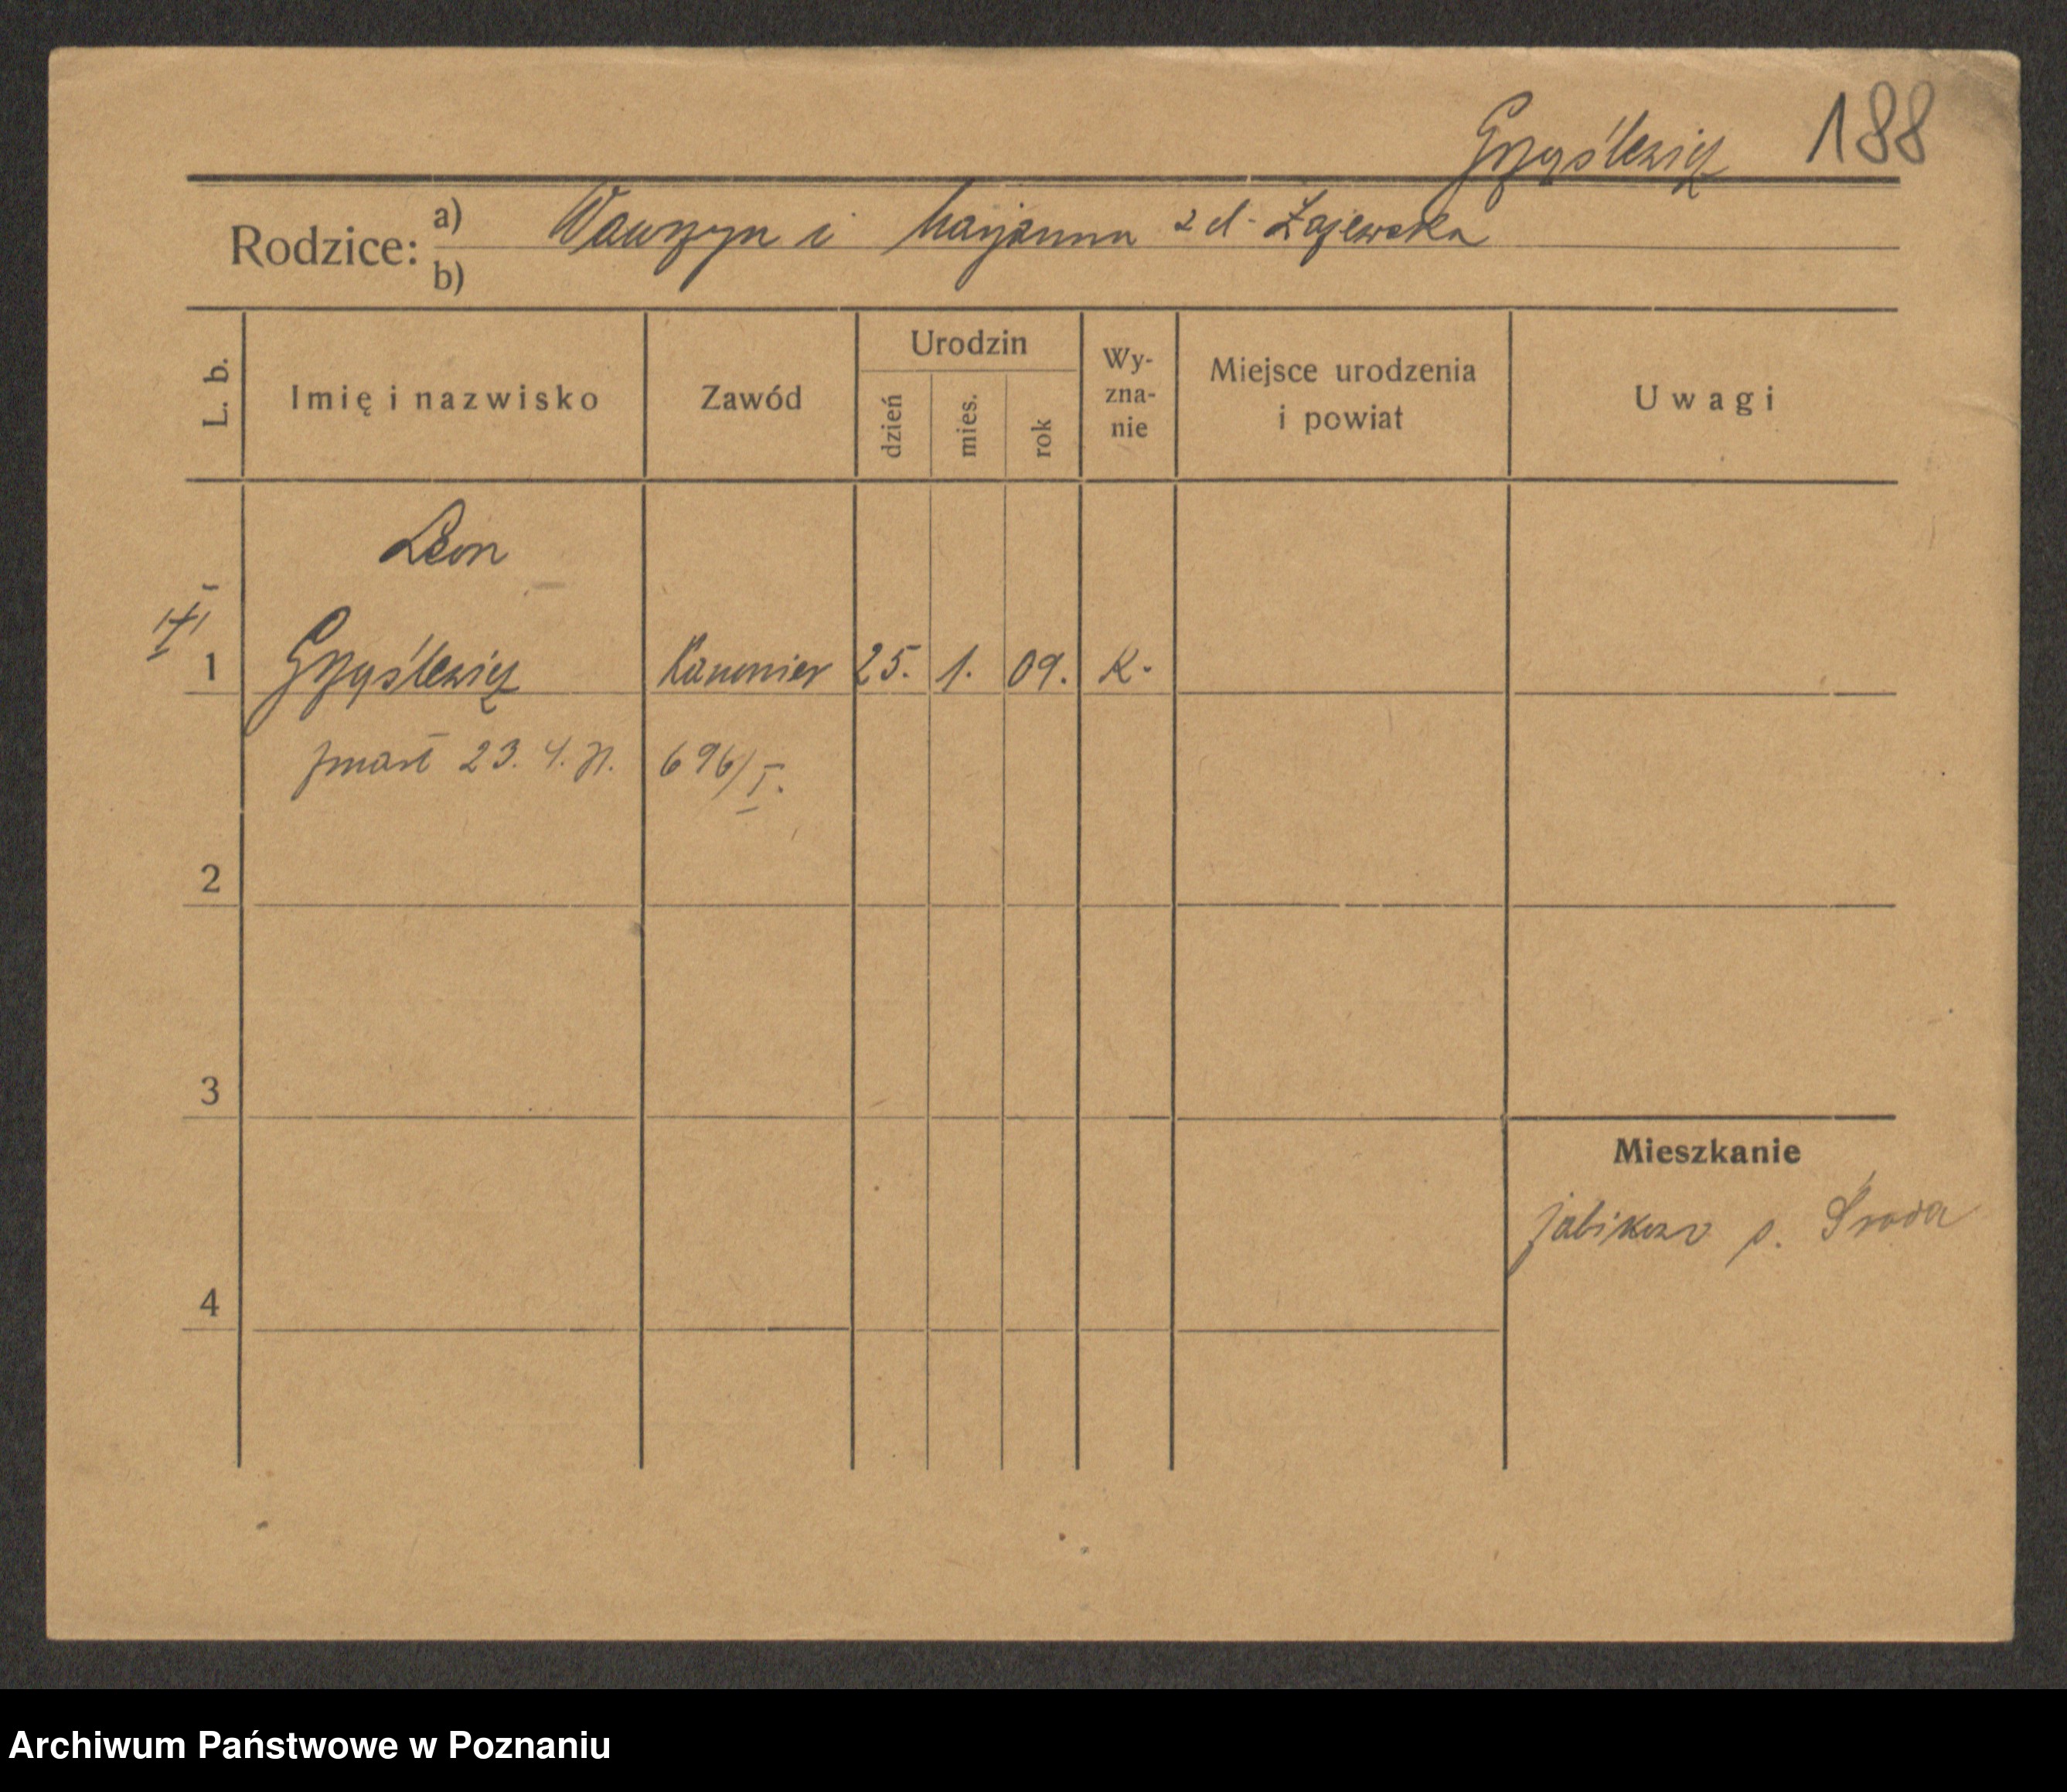 Grzyśkiewicz 188
Rodzice: a) Wawrzyn i Marjanna z d. Zajewska
b)
L. b. Imię i nazwisko Zawód Urodzin dzień mies. rok Wyznanie Miejsce urodzenia i powiat Uwagi
Leon
1 Kanonier 25. 1. 09. K.
zmarł 23. 4. 31. 696/I.
2
3
Mieszkanie
p. Środa
4
Archiwum Państwowe w Poznaniu